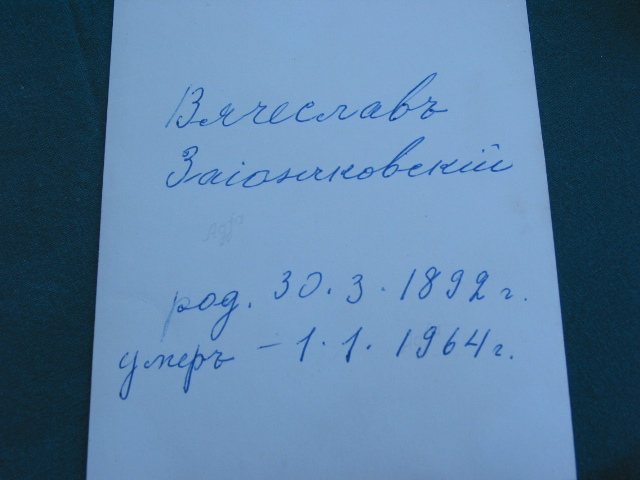 Вячеславъ
Заіончковскій
род. 30.3.1892 г.
умеръ – 1.1.1964 г.